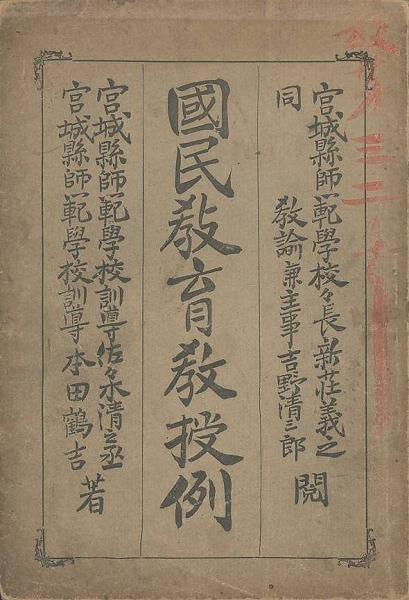 宮城縣師範學校々長新莊義之
同　教諭兼主事吉野清三郎　閲
國民教育教授例
宮城縣師範學校訓導佐々木清之丞
宮城縣師範學校訓導本田鶴吉　著